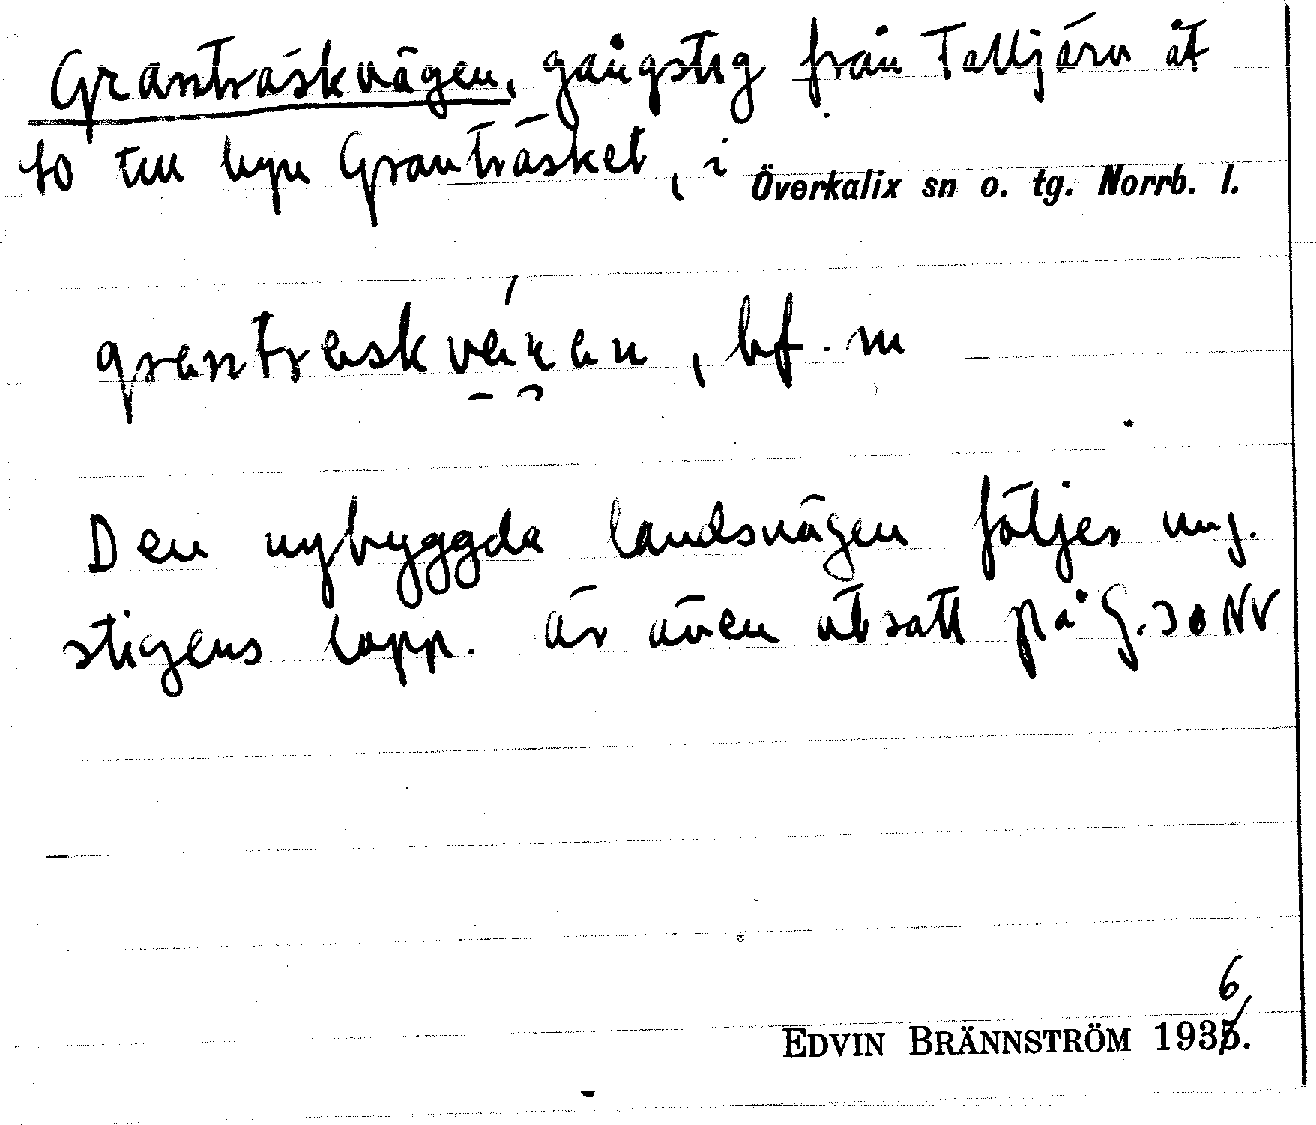 Granträskvägen, gångstig från Talljärv åt
so till byn Granträsket, i Överkalix sn o. tg. Norrb. l.
grantræskvä́ɣen, bf. m
Den nybyggda landsvägen följer ung.
stigens lopp. Är även utsatt på G. 30 NV
6
EDVIN BRÄNNSTRÖM 1935.